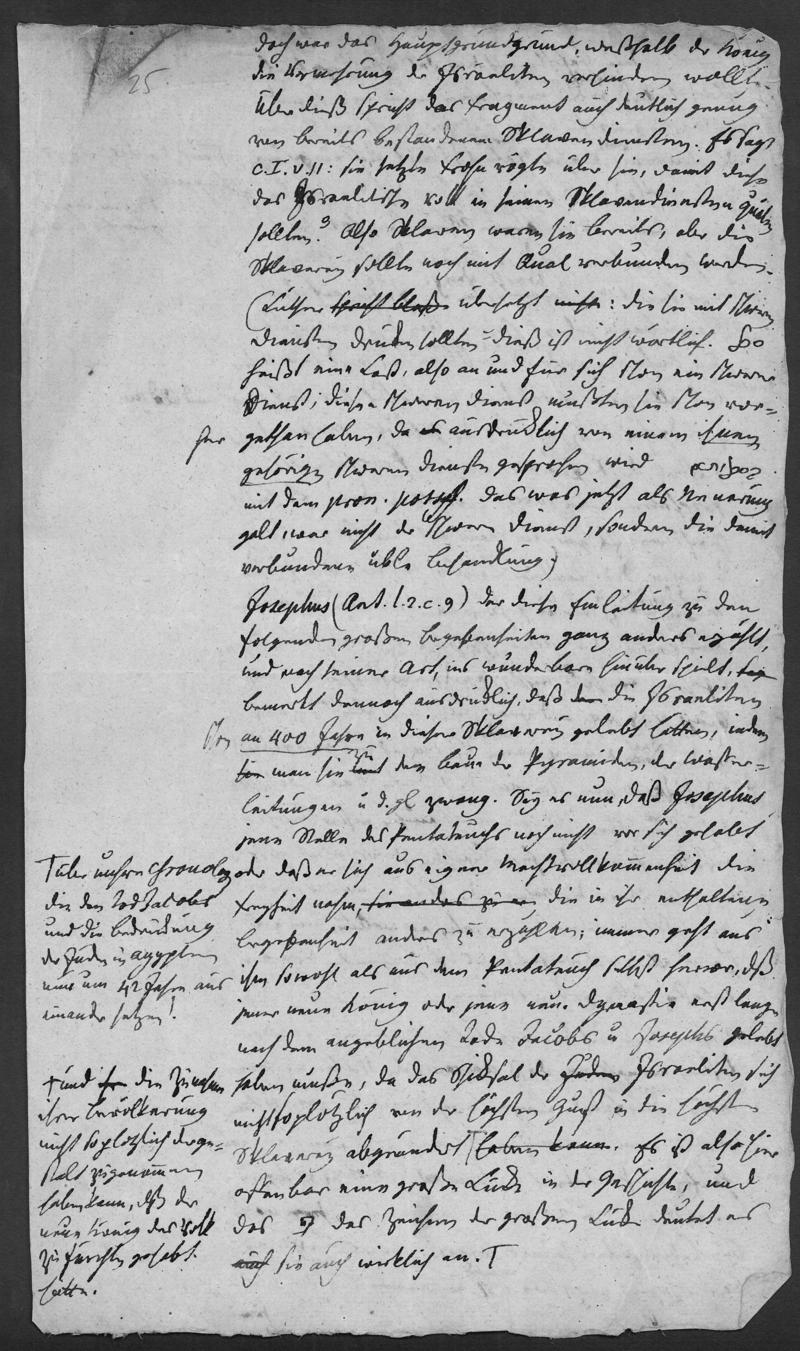 25
doch war das Hauptgrundgrund, weßhalb der König
die Vermehrung der Israeliten verhindern wollte.
Über dieß spricht das Fragment auch deutlich genug
von bereits bestandenen Sklavendiensten. Es sagt
c. I. v. 11: sie setzte Frohnvögte über sie, damit diese
das Israelitische Volk in seinen Sklavendiensten quälen
sollten. Also Sklaven waren sie bereits, aber die
Sklaverei sollte noch mit Qual verbunden werden.
(Luther spricht bloß übersetzt nicht: die sie mit schweren
Diensten drücken sollten – dieß ist nicht wörtlich.
heißt eine Last, also an und für sich schon ein schwerer
Dienst; diesen schweren Dienst mußten sie schon vor=
her
gethan haben, da es ausdrücklich von einem ihnen
gehörigen schweren Dienste gesprochen wird
mit dem pron. possess. Das was jetzt als Neuerung
galt, war nicht der schwere Dienst, sondern die damit
verbundene üble Behandlung.)
Josephus (Ant. l. 2. c. 9) der diese Einleitung zu den
folgenden großen Begebenheiten ganz anders erzählt,
und nach seiner Art, ins wunderbare hinüber spielt,
bemerkt dennoch ausdrücklich, daß die Israeliten
schon an 400 Jahre in dieser Sklaverei gelebt hätten, indem
man sie zu dem Baue der Pyramiden, der Wasser=
leitungen u. d. gl. zwang. Sey es nun, daß Josephus
jene Stelle des Pentateuchs noch nicht vor sich gehabt
oder daß er sich aus eigener Machtvollkommenheit die
Freyheit nahm, die in ihr enthaltene
Begebenheit anders zu erzählen; immer geht aus
ihm sowohl als aus dem Pentateuch selbst hervor, daß
jener neue König oder jene neue Dynastie erst lange
nach dem angeblichen Tode Jacobs u Josephs gelebt
haben müße, da das Schiksal der Juden Israeliten sich
nicht so plötzlich von der höchsten Gunst in die höchste
Sklaverei abgeändert haben kann. Es ist also hier
offenbar eine große Lücke in der Geschichte, und
das פ das Zeichen der großen Lücke deutet es
auch sie auch wirklich an. T
T über unsere Chronolog
die den Tod Jacobs
und die Bedrückung
der Juden in Aegypten
nur um 42 Jahre aus
einander setzen!
† und die Zunahme
ihrer Bevölkerung
nicht so plötzlich derge=
stalt zugenommen
haben kann, daß der
neue König das Volk
zu fürchten gehabt
hätte.